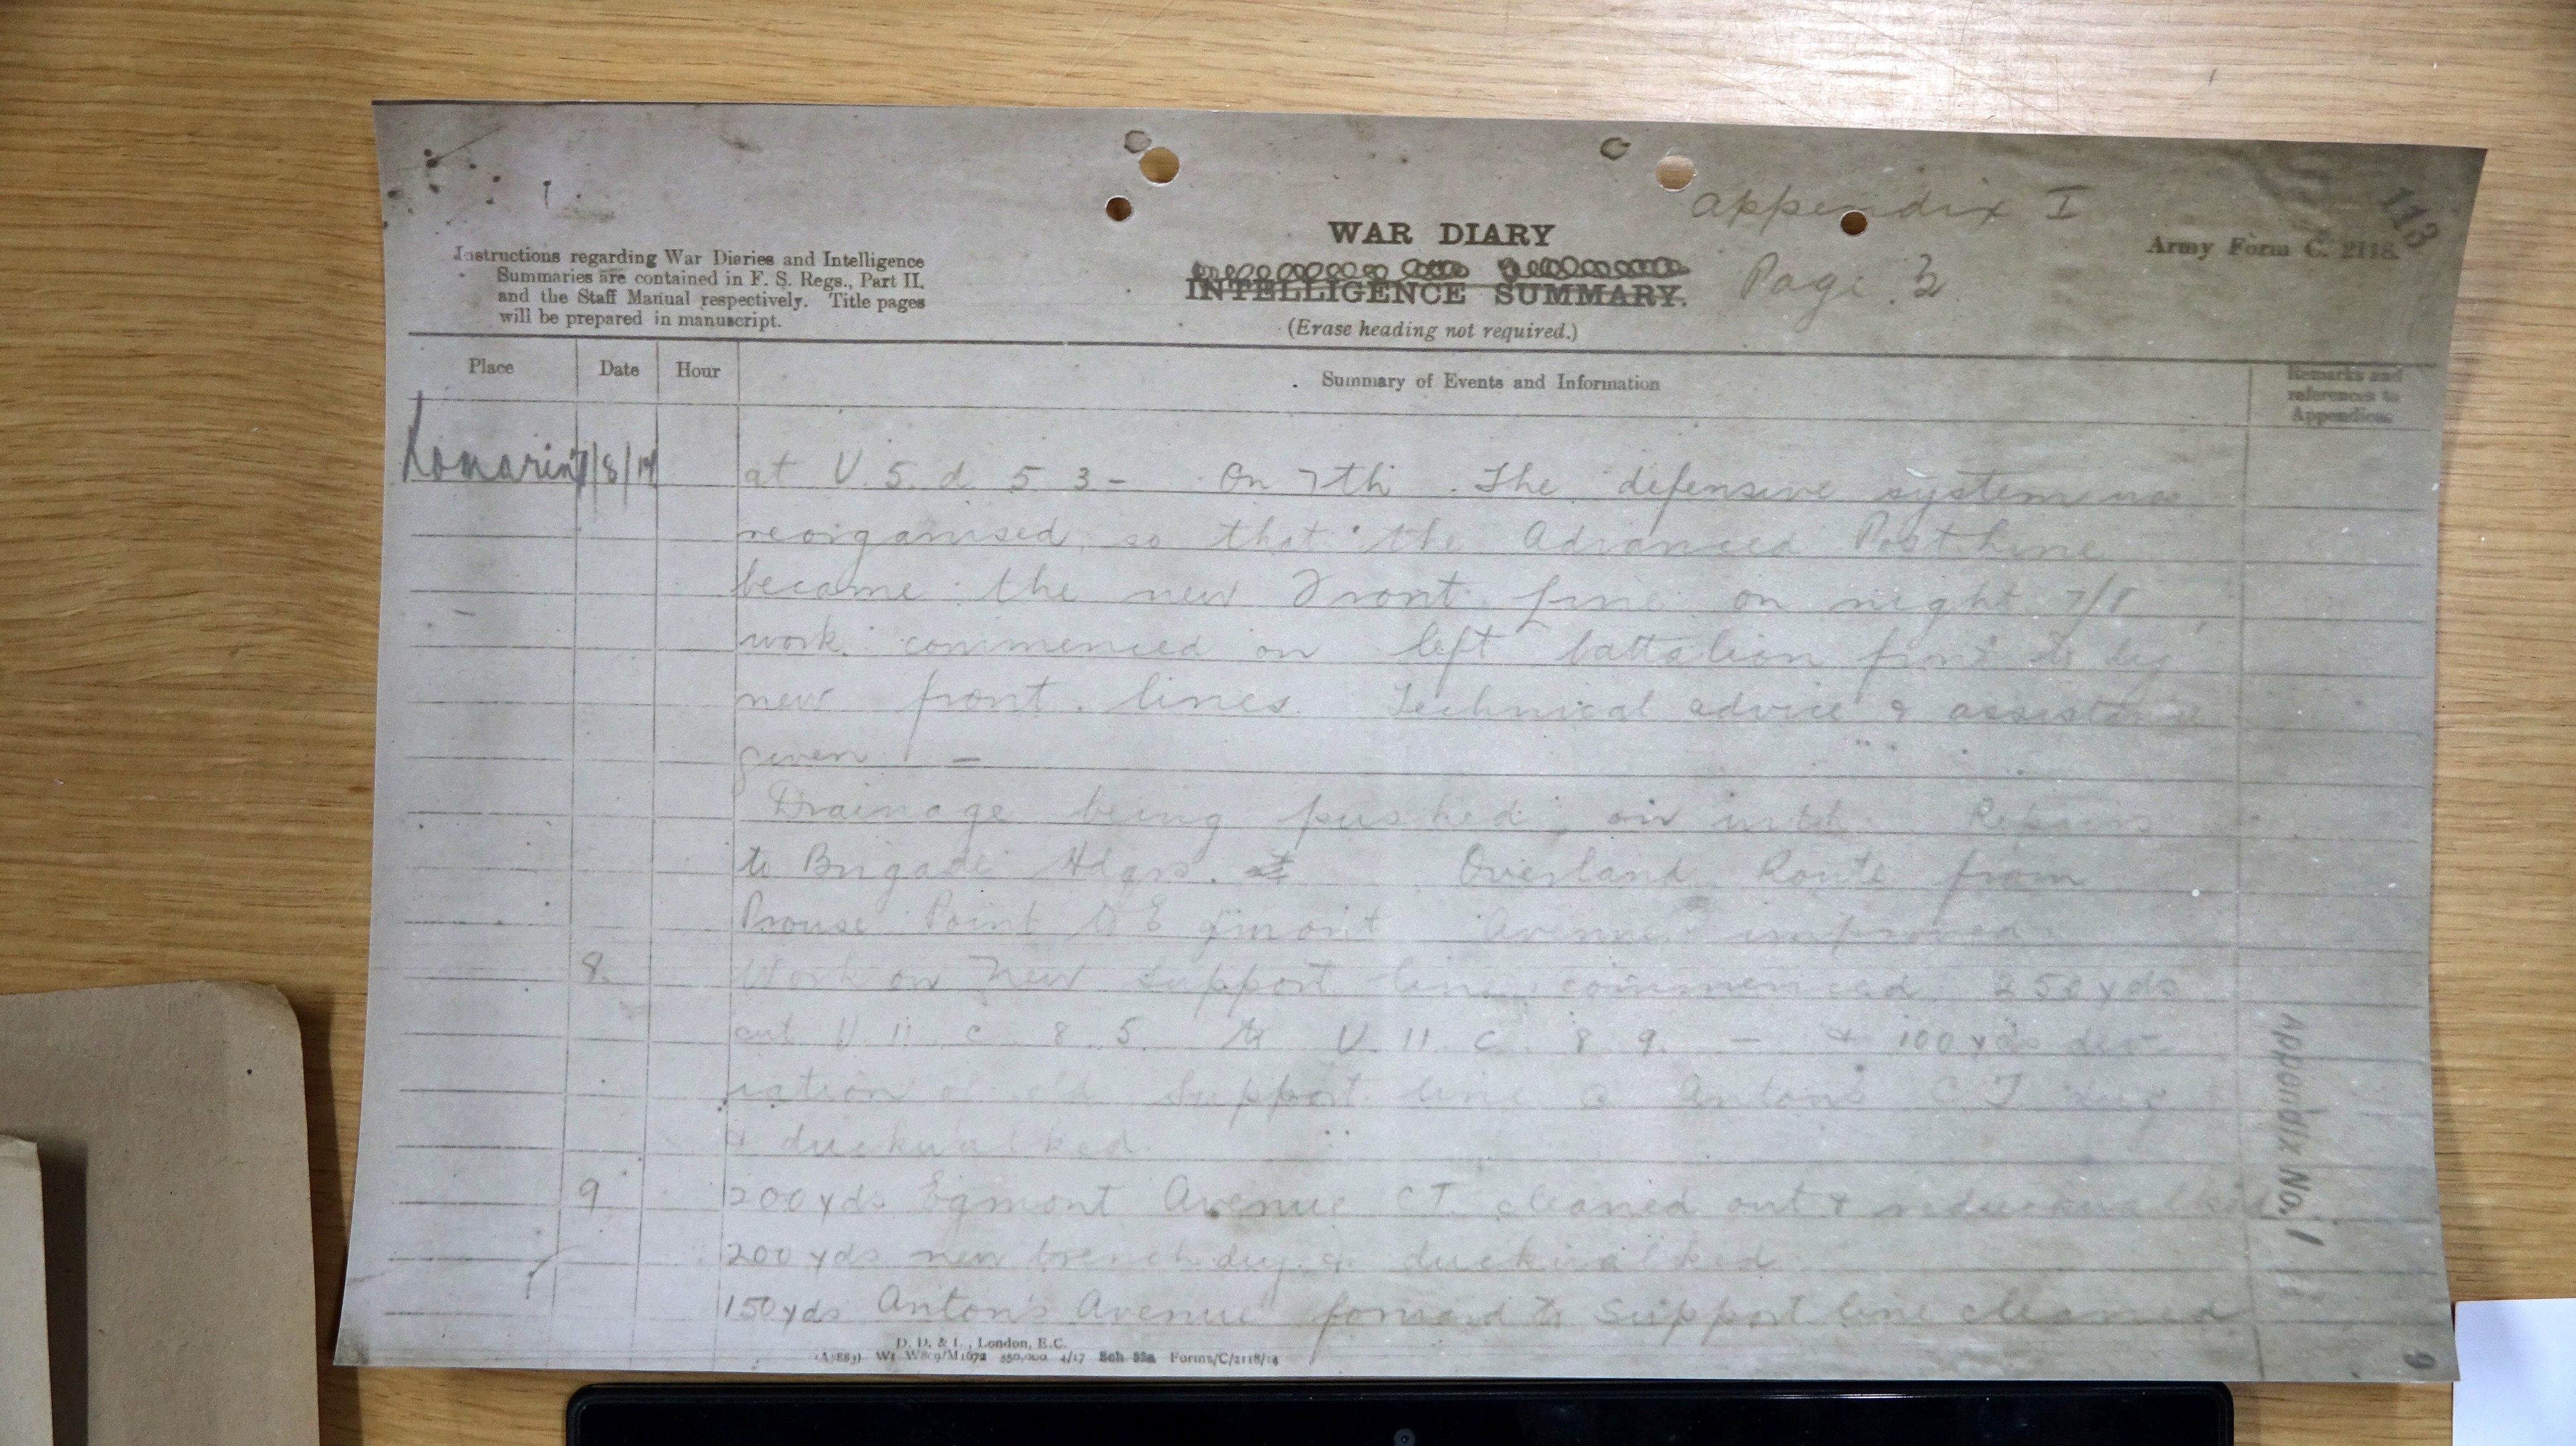 Appendix I
113
WAR DIARY
Army Form C. 2118.
Instructions regarding War Diaries and Intelligence
Summaries are contained in F. S. Regs., Part II.
and the Staff Manual respectively. Title pages
will be prepared in manuscript.
INTELLIGENCE SUMMARY.
Page 3
(Erase heading not required.)
Place Date Hour Summary of Events and Information Remarks and
references to
Appendices
Romarin 7/8/17 at U. 5. d 5 3 - On 7th The defensive system was
reorganised, so that the Advanced Post Line
became the new Front line on night 7/8
work commenced on left battalion front to dig
new front lines. Technical advice & assistance
given -
Drainage being pushed on with Repairs
to Brigade Hdqrs. Overland Route from
Prouse Point to Egmont Avenue improved
8. Work on new Support line commenced 250 yds
cut U 11 c 8 5. to U. 11 c. 8 9. - & 100 yds dev-
iation of old Support line @ Antons C.T. dug
& duckwalked
9 200 yds Egmont Avenue CT. cleaned out & reduckwalked
200 yds new trench dug & duckwalked
150 yds Anton's Avenue forward to Support line cleaned
Appendix No. 1
D. D. & L., London, E.C.
(A7883) Wt W809/M1672 350,000 4/17 Sch 52a Forms/C/2118/14
9